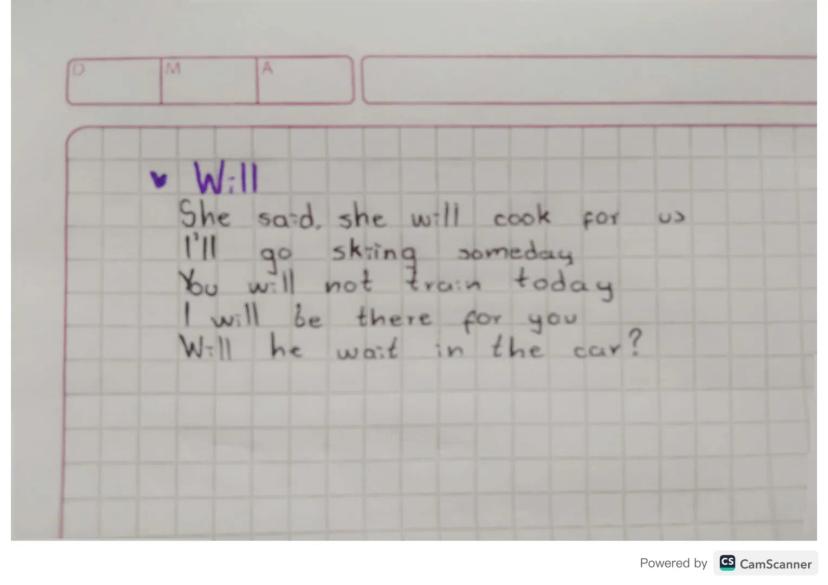 D M A
♥ Will
She said, she will cook for us
I'll go skiing someday
You will not train today
I will be there for you
Will he wait in the car?
Powered by CS CamScanner